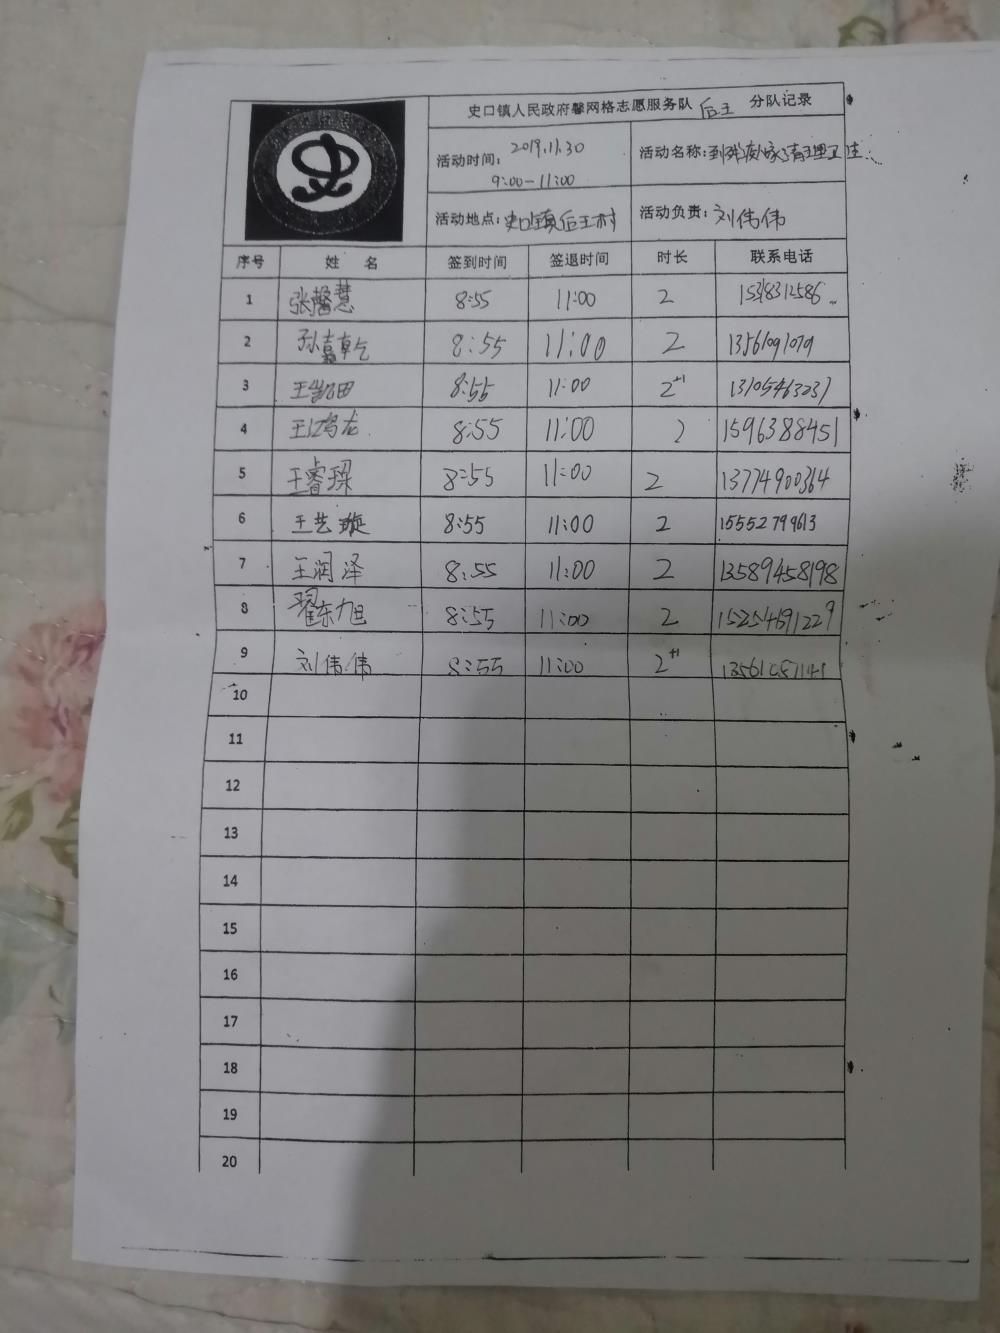 史口镇人民政府馨网格志愿服务队 后王 分队记录
活动时间: 2019.11.30 9:00-11:00
活动名称: 到 家清理卫生
活动地点: 史口镇后王村
活动负责: 刘伟伟
序号 姓 名 签到时间 签退时间 时长 联系电话
1 张馨慧 8:55 11:00 2 15318312586
2 孙嘉乾 8:55 11:00 2
3 王凯田 8:55 11:00 2+1 13105463231
4 王鸿龙 8:55 11:00 2 15963888451
5 王睿琛 8:55 11:00 2 13774900364
6 王艺璇 8:55 11:00 2 15552799613
7 王润泽 8:55 11:00 2 13589458198
8 翟东旭 8:55 11:00 2 15254691229
9 刘伟伟 8:55 11:00 2+1 13561057141
10
11
12
13
14
15
16
17
18
19
20